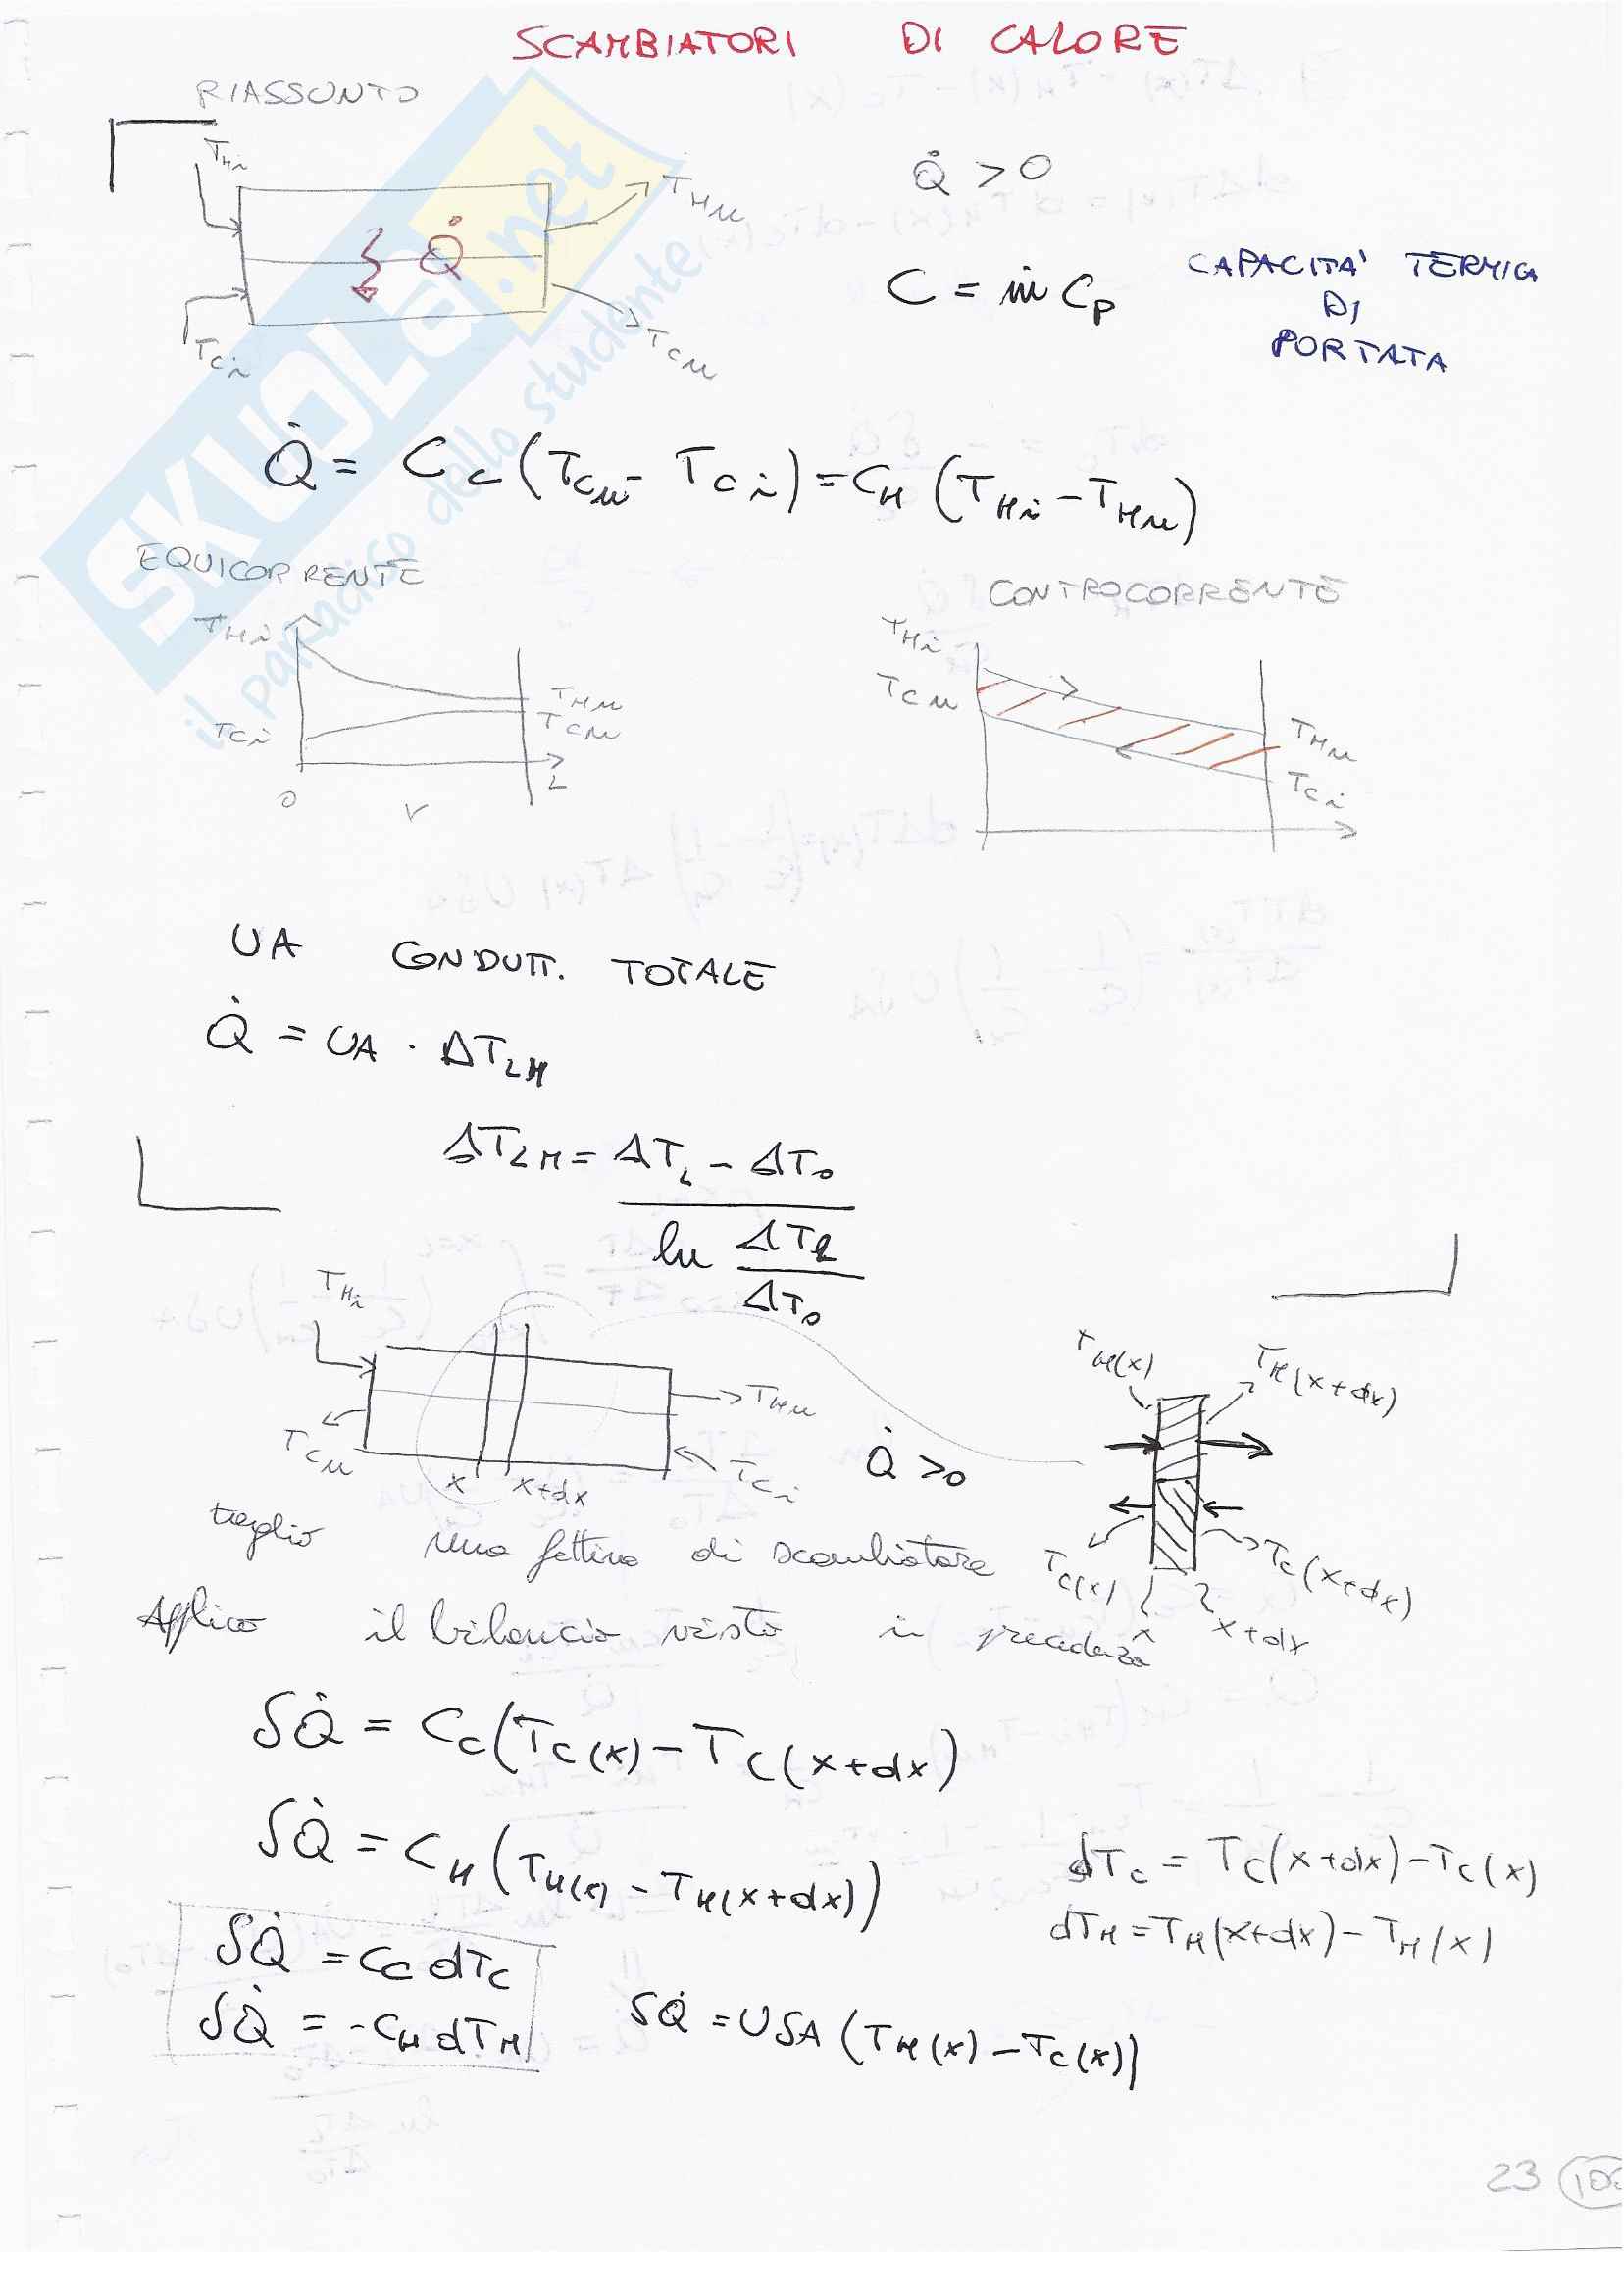 SCAMBIATORI DI CALORE
RIASSUNTO
T_Hi
T_Hu
Q̇
T_Ci
T_Cu
Q̇ > 0
C = ṁ C_P
CAPACITA' TERMICA
DI
PORTATA
Q̇ = C_C (T_Cu - T_Ci) = C_H (T_Hi - T_Hu)
EQUICORRENTE
T_Hi
T_Ci
T_Hu
T_Cu
0
L
CONTROCORRENTE
T_Hi
T_Cu
T_Hu
T_Ci
UA CONDUTT. TOTALE
Q̇ = UA · ΔT_LM
ΔT_LM = ΔT_L - ΔT_0
ln ΔT_L
ΔT_0
T_Hi
T_Hu
T_Cu
T_Ci
x x+dx
Q̇ > 0
T_H(x)
T_H(x+dx)
T_C(x)
T_C(x+dx)
x x+dx
taglio una fettina di scambiatore
Applico il bilancio visto in precedenza
δQ̇ = C_C (T_C(x) - T_C(x+dx)
δQ̇ = C_H (T_H(x) - T_H(x+dx))
dT_C = T_C(x+dx) - T_C(x)
dT_H = T_H(x+dx) - T_H(x)
δQ̇ = C_C dT_C
δQ̇ = -C_H dT_H
δQ̇ = UδA (T_H(x) - T_C(x))
23
SKUOLA.net
il paradiso dello studente